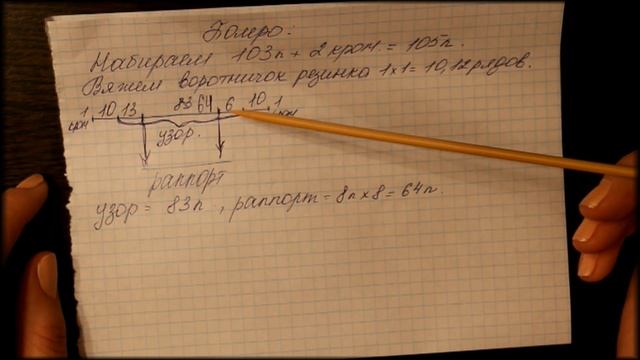 Болеро:
Набираем 103п + 2 кром. = 105п.
Вяжем воротничок резинка 1x1 = 10,12 рядов.
1 10 13 83 64 6 10 1
кром кром
узор.
раппорт
узор = 83п , раппорт = 8п x 8 = 64п.